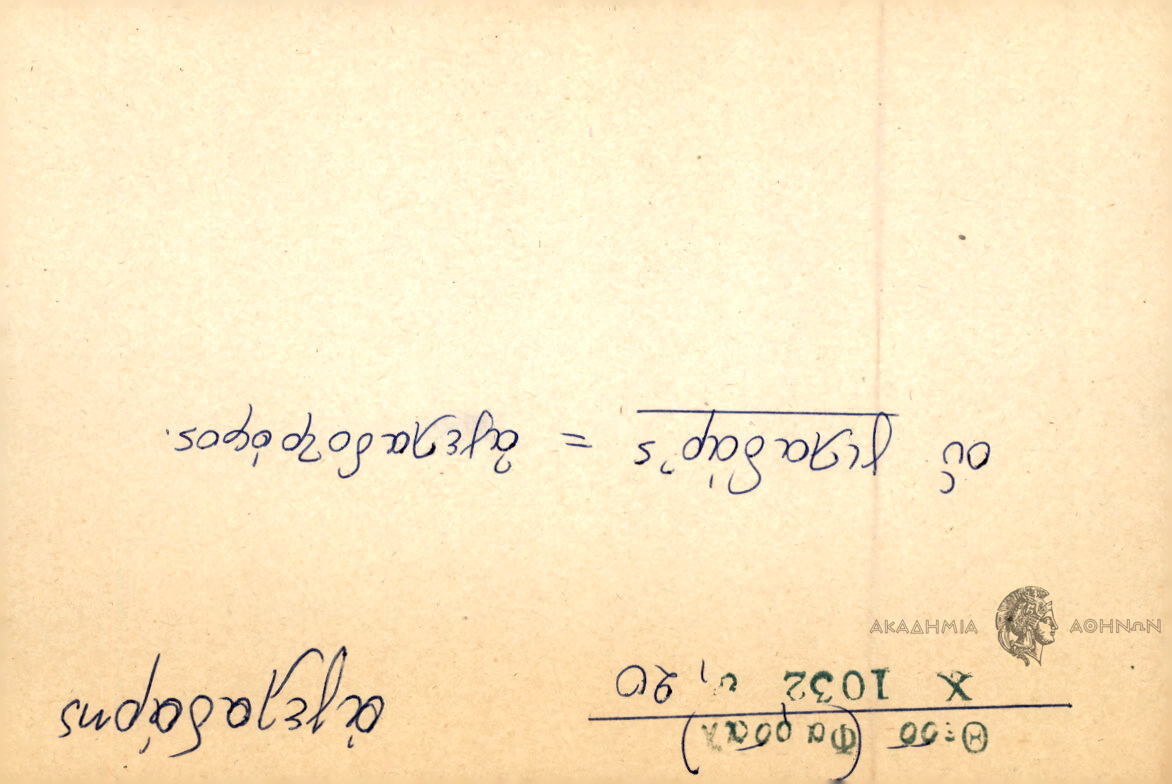 Θεσσ (Φαρσαλ)
Χ 1032 σ, 20
ἀγελαδάρης
οὑ γελαδάρ'ς = ἀγελαδοτρόφος.
ΑΚΑΔΗΜΙΑ ΑΘΗΝΩΝ